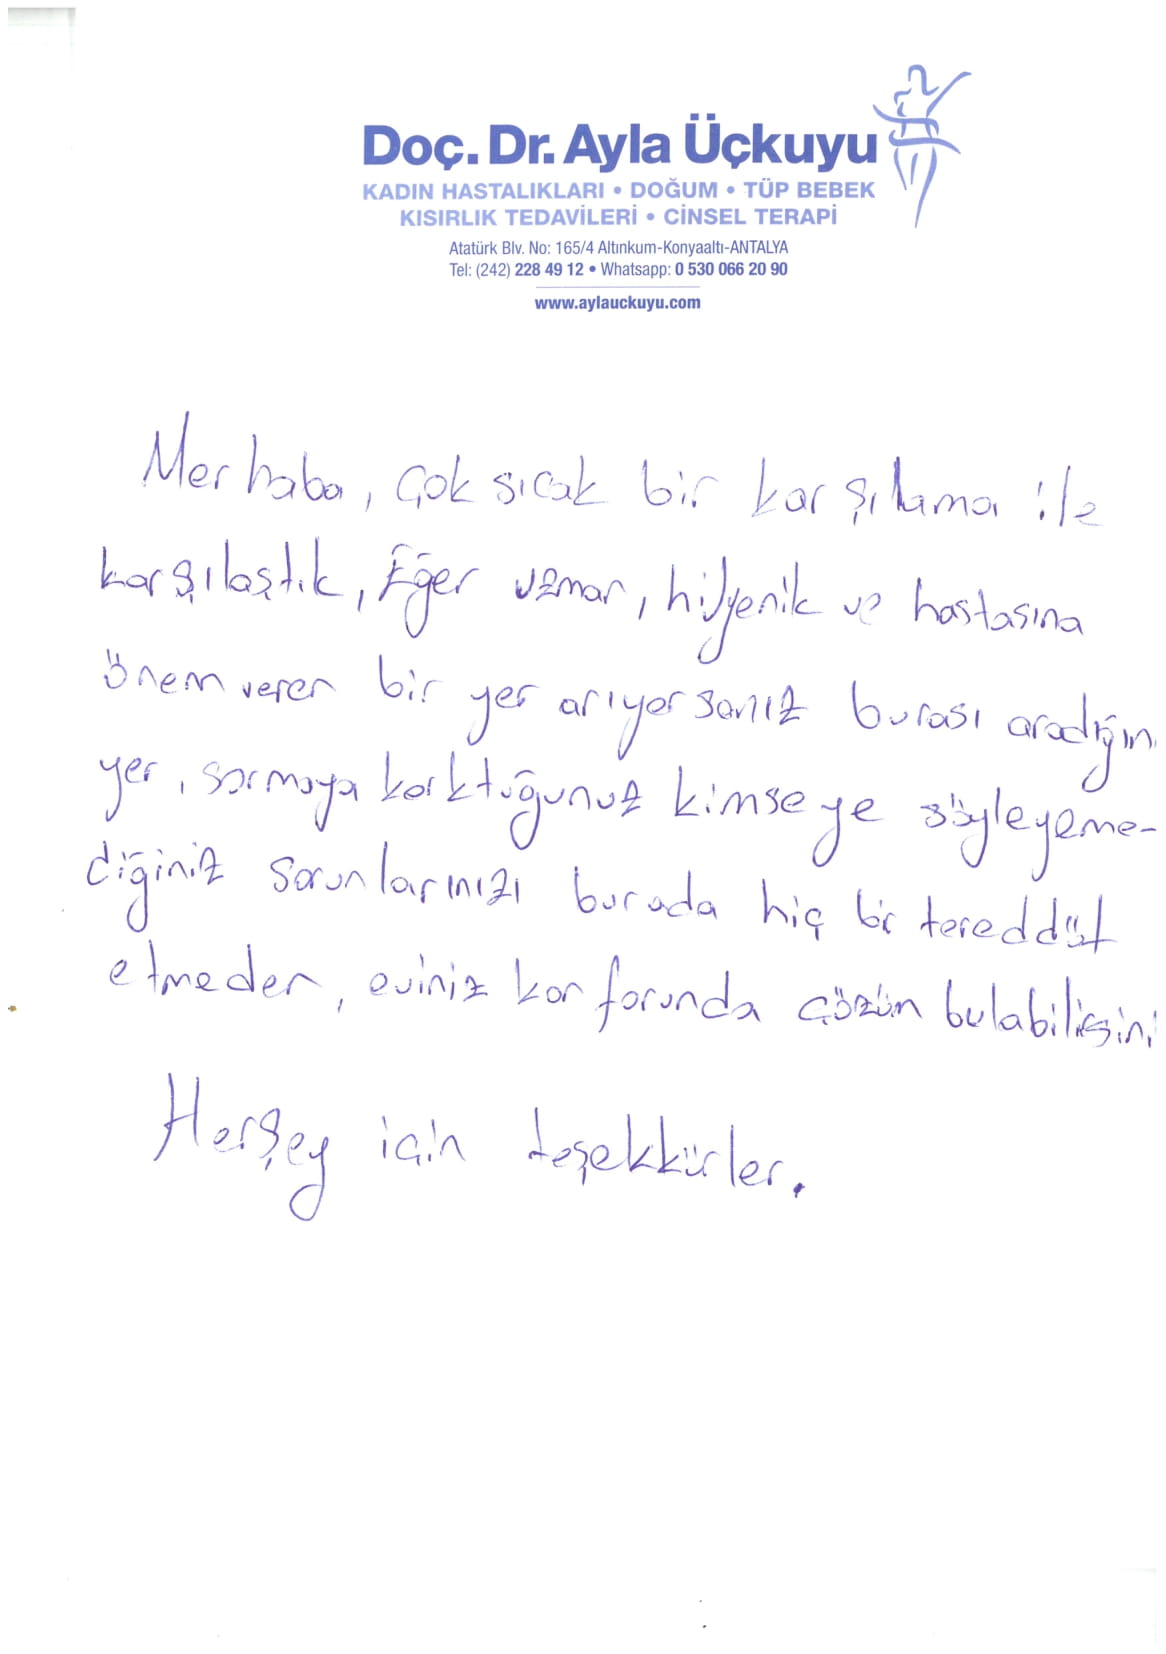 Doç. Dr. Ayla Üçkuyu
KADIN HASTALIKLARI • DOĞUM • TÜP BEBEK
KISIRLIK TEDAVİLERİ • CİNSEL TERAPİ
Atatürk Blv. No: 165/4 Altınkum-Konyaaltı-ANTALYA
Tel: (242) 228 49 12 • Whatsapp: 0 530 066 20 90
www.aylauckuyu.com
Merhaba, çok sıcak bir karşılama ile
karşılaştık, Eğer uzman, hijyenik ve hastasına
önem veren bir yer arıyorsanız burası aradığın
yer, sormaya korktuğunuz kimseye söyleyeme-
diğiniz sorunlarınızı burada hiç bir tereddüt
etmeden, eviniz konforunda çözün bulabilirsini
Herşey için teşekkürler.